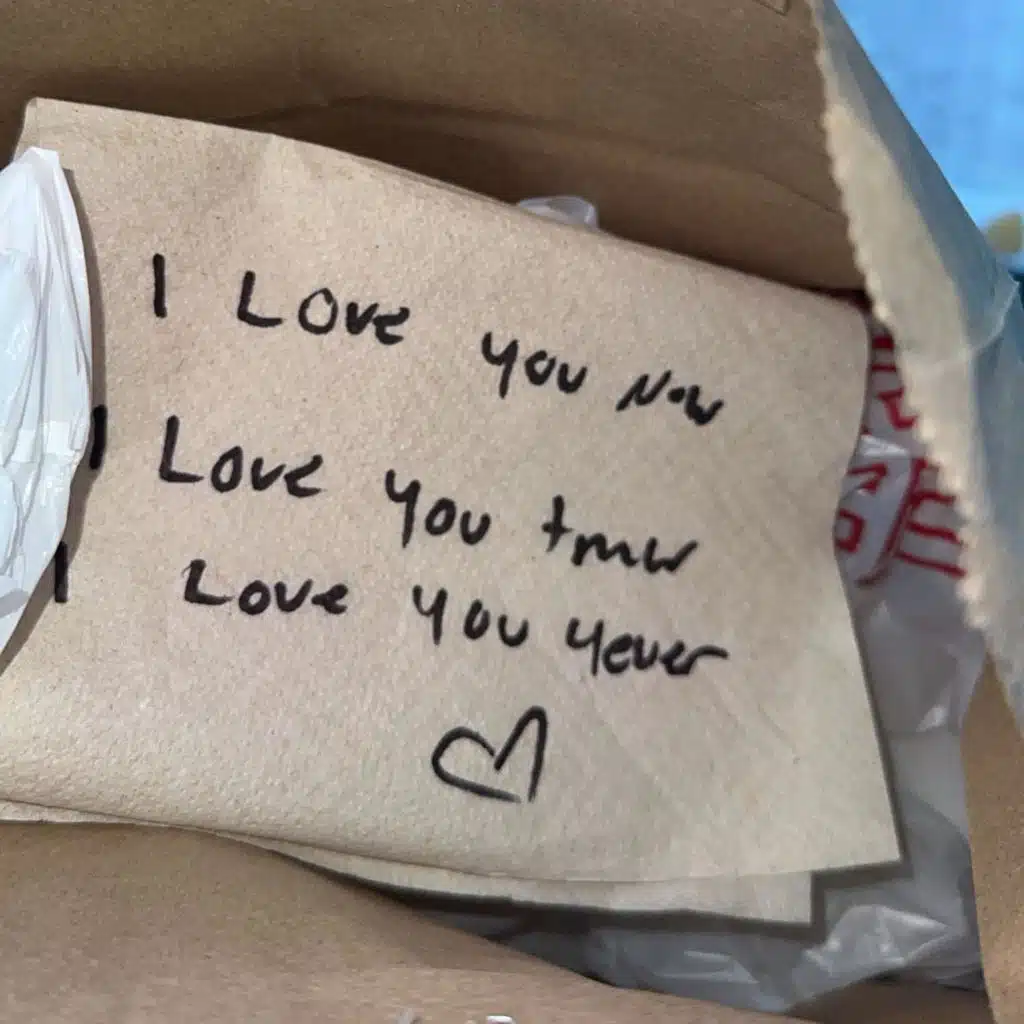 I Love you Now
I Love you tmw
I Love you 4ever